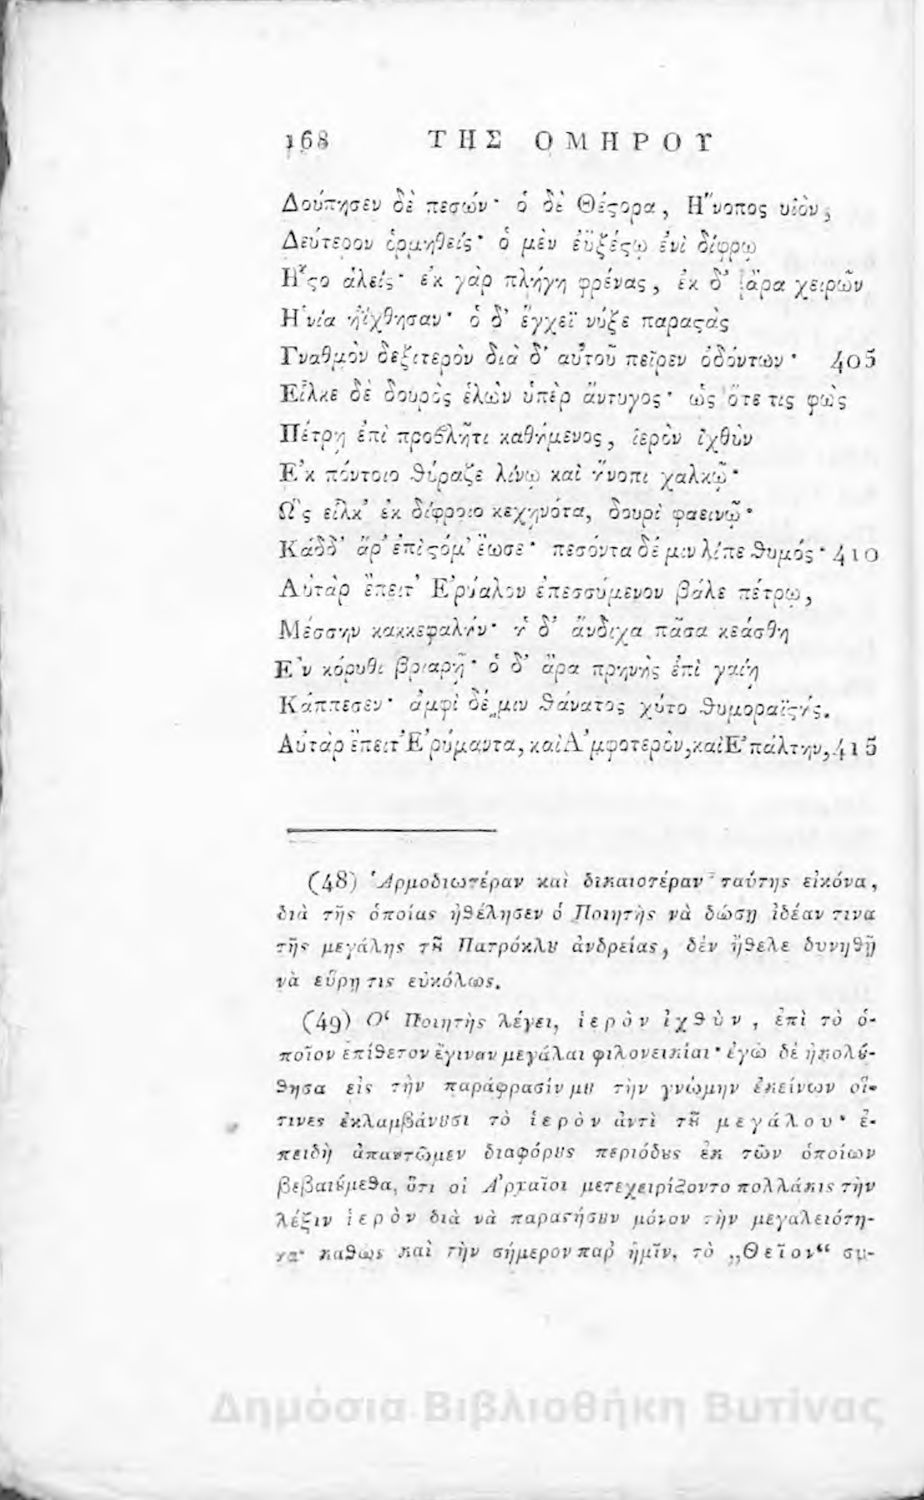 168 ΤΗΣ ΟΜΗΡΟΥ
Δούπησεν δὲ πεσών· ὁ δὲ Θέϛορα, Ἤνοπος υἱὸν,
Δεύτερον ὁρμηθείς· ὁ μὲν ἐϋξέϛῳ ἐνὶ δίφρῳ
Ἧϛο ἀλείς· ἐκ γὰρ πλήγη φρένας, ἐκ δ' ἄρα χειρῶν
Ἡνία ἠΐχθησαν· ὁ δ' ἔγχεϊ νύξε παραϛὰς
Γναθμὸν δεξιτερὸν διὰ δ' αὐτοῦ πεῖρεν ὀδόντων· 405
Εἷλκε δὲ δουρὸς ἑλὼν ὑπὲρ ἄντυγος· ὡς ὅτε τις φὼς
Πέτρῃ ἐπὶ προβλῆτι καθήμενος, ἱερὸν ἰχθὺν
Ἐκ πόντοιο θύραζε λίνῳ καὶ ἤνοπι χαλκῷ·
Ὣς εἷλκ' ἐκ δίφροιο κεχηνότα, δουρὶ φαεινῷ·
Κὰδδ' ἄρ' ἐπὶ ϛόμ' ἔωσε· πεσόντα δέ μιν λίπε θυμός· 410
Αὐτὰρ ἔπειτ' Ἐρύαλον ἐπεσσύμενον βάλε πέτρῳ,
Μέσσην κακκεφαλήν· ἡ δ' ἄνδιχα πᾶσα κεάσθη
Ἐν κόρυθι βριαρῇ· ὁ δ' ἄρα πρηνὴς ἐπὶ γαίῃ
Κάππεσεν· ἀμφὶ δέ μιν θάνατος χύτο θυμοραϊϛής.
Αὐτὰρ ἔπειτ' Ἐρύμαντα, καὶ Ἀμφοτερὸν, καὶ Ἐπάλτην, 415
(48) Ἁρμοδιωτέραν καὶ δικαιοτέραν ταύτης εἰκόνα,
διὰ τῆς ὁποίας ἠθέλησεν ὁ Ποιητὴς νὰ δώσῃ ἰδέαν τινα
τῆς μεγάλης τȣ͂ Πατρόκλȣ ἀνδρείας, δὲν ἤθελε δυνηθῇ
νὰ εὕρῃ τις εὐκόλως.
(49) Ὁ Ποιητὴς λέγει, ἱερὸν ἰχθὺν, ἐπὶ τὸ ὁ-
ποῖον ἐπίθετον ἔγιναν μεγάλαι φιλονεικίαι· ἐγὼ δὲ ἠκολȣ́-
θησα εἰς τὴν παράφρασίν μȣ τὴν γνώμην ἐκείνων οἵ-
τινες ἐκλαμβάνȣσι τὸ ἱερὸν ἀντὶ τȣ͂ μεγάλου· ἐ-
πειδὴ ἀπαντῶμεν διαφόρȣς περιόδȣς ἐκ τῶν ὁποίων
βεβαιȣ́μεθα, ὅτι οἱ Ἀρχαῖοι μετεχειρίζοντο πολλάκις τὴν
λέξιν ἱερὸν διὰ νὰ παραστήσȣν μόνον τὴν μεγαλειότη-
τα· καθὼς καὶ τὴν σήμερον παρ' ἡμῖν, τὸ „Θεῖον“ συ-
Δημόσια Βιβλιοθήκη Βυτίνας